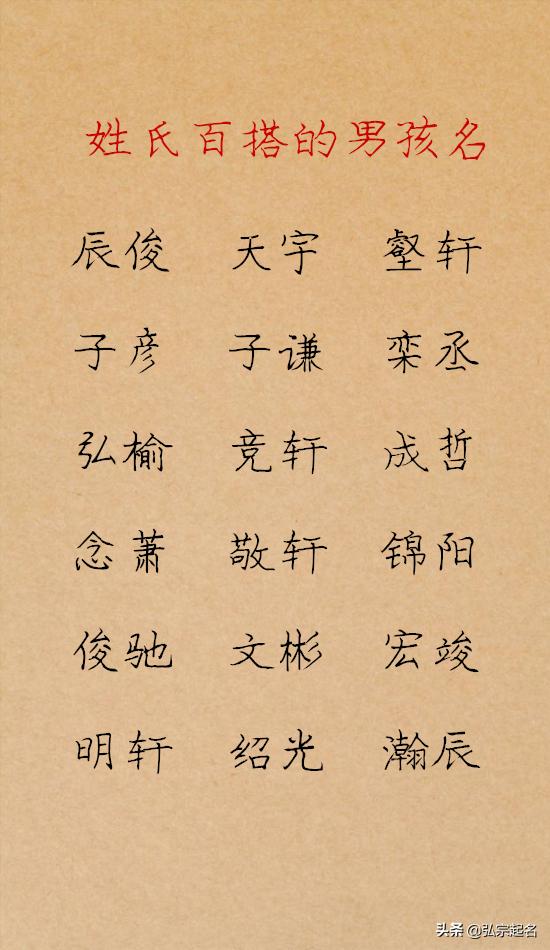 姓氏百搭的男孩名
辰俊 天宇 壑轩
子彦 子谦 栾丞
弘榆 竞轩 成哲
念萧 敬轩 锦阳
俊驰 文彬 宏竣
明轩 绍光 瀚辰
头条 @弘宗起名